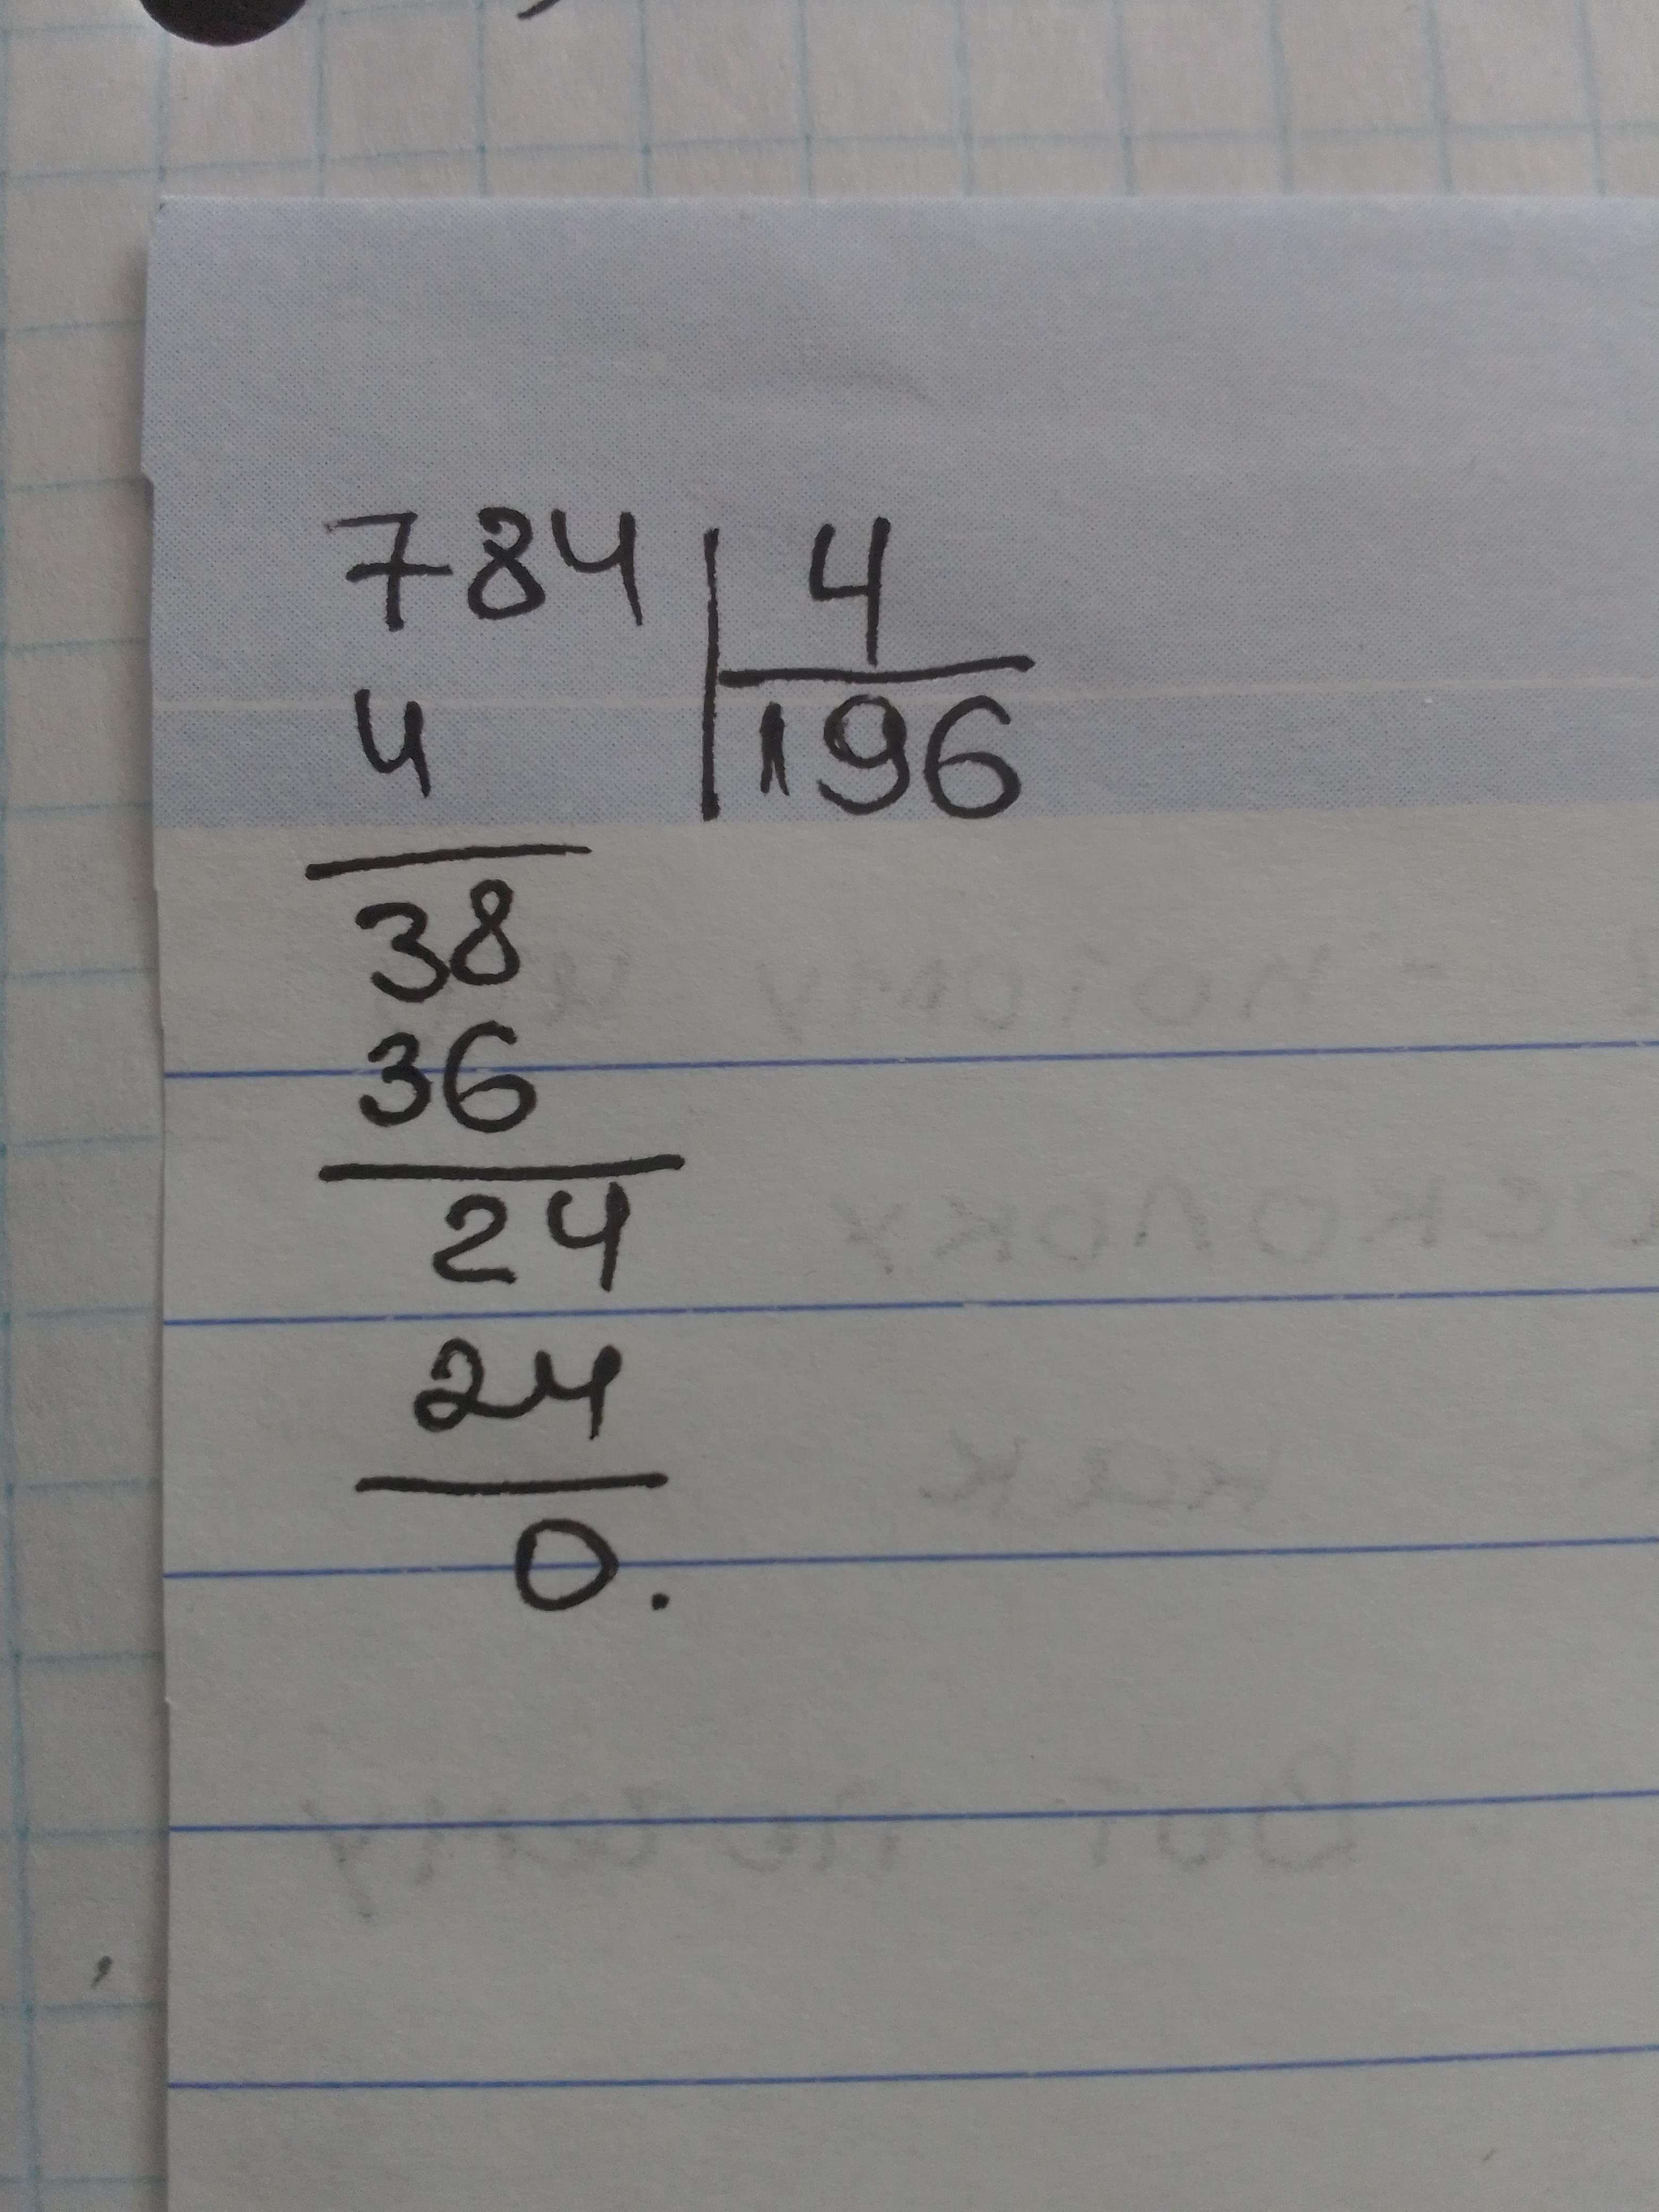 784 4
4 196
38
36
24
24
0.